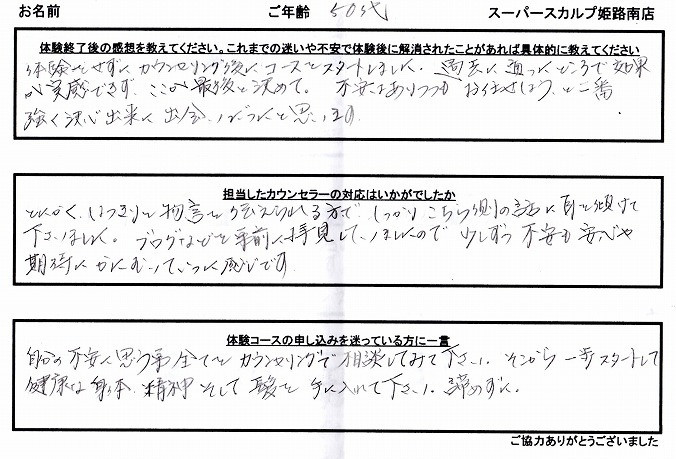 お名前 ご年齢 50代 スーパースカルプ姫路南店
体験終了後の感想を教えてください。これまでの迷いや不安で体験後に解消されたことがあれば具体的に教えてください
体験をせずにカウンセリング後にコースをスタートしました。過去に通ったところで効果
が実感できず、ここが最後と決めて。不安はありつつもお任せしよう、と一番
強く決心出来た出会いだったと思います
担当したカウンセラーの対応はいかがでしたか
とにかく、はっきりと物言を伝えられる方で、しっかりこちら側の話に耳を傾けて
下さいました。ブログなどを事前に拝見していましたので少しずつ不安も安心や
期待にかたむいていった感じです
体験コースの申し込みを迷っている方に一言
自分の不安に思う事全てをカウンセリングで相談してみて下さい。そこから一歩スタートして
健康な身体、精神そして髪を手に入れて下さい。諦めずに。
ご協力ありがとうございました